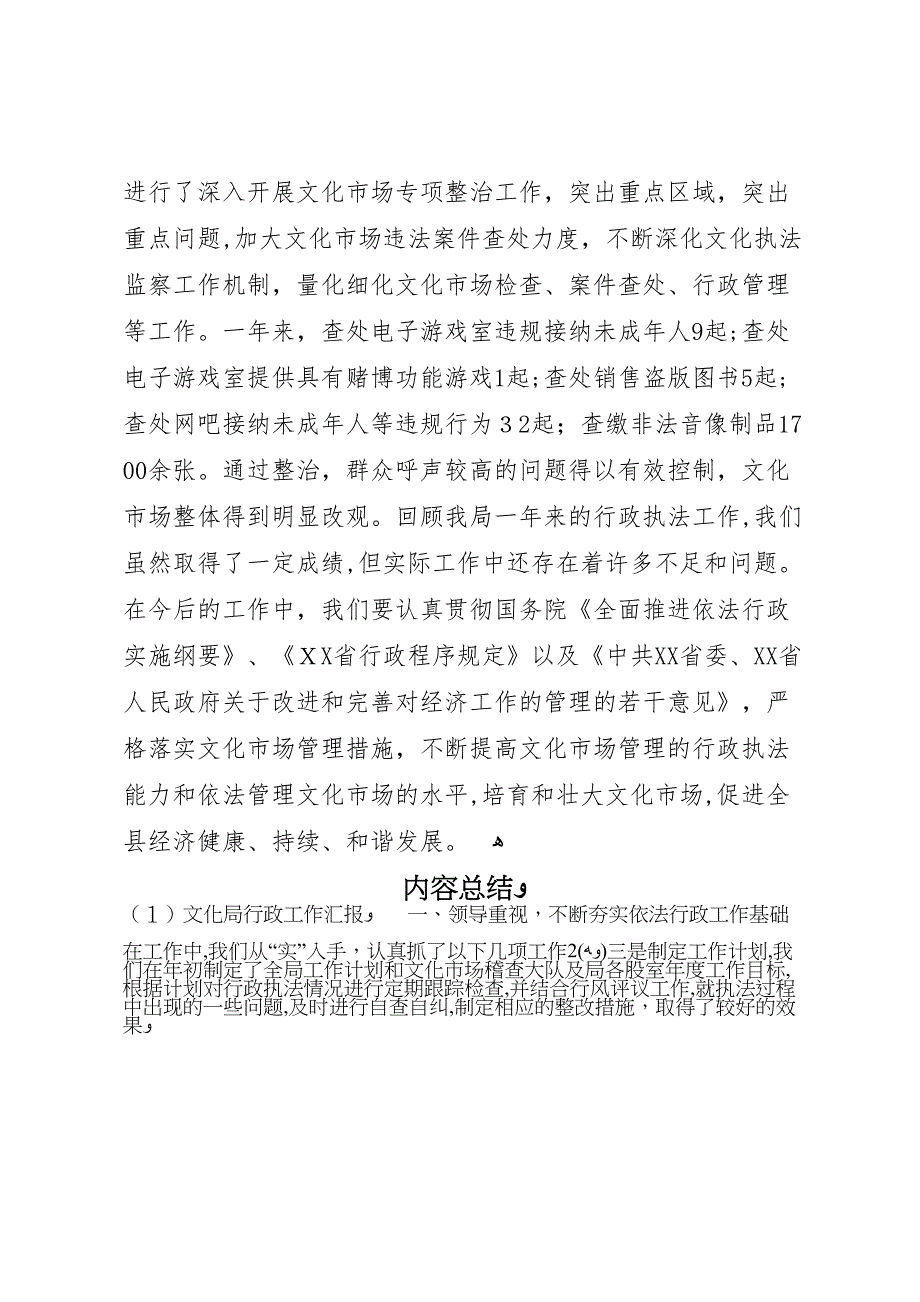 进行了深入开展文化市场专项整治工作，突出重点区域，突出
重点问题,加大文化市场违法案件查处力度，不断深化文化执法
监察工作机制，量化细化文化市场检查、案件查处、行政管理
等工作。一年来，查处电子游戏室违规接纳未成年人9起;查处
电子游戏室提供具有赌博功能游戏1起;查处销售盗版图书5起;
查处网吧接纳未成年人等违规行为３2起；查缴非法音像制品17
00余张。通过整治，群众呼声较高的问题得以有效控制，文化
市场整体得到明显改观。回顾我局一年来的行政执法工作,我们
虽然取得了一定成绩,但实际工作中还存在着许多不足和问题。
在今后的工作中，我们要认真贯彻国务院《全面推进依法行政
实施纲要》、《ＸX省行政程序规定》以及《中共XX省委、XX省
人民政府关于改进和完善对经济工作的管理的若干意见》，严
格落实文化市场管理措施，不断提高文化市场管理的行政执法
能力和依法管理文化市场的水平,培育和壮大文化市场,促进全
县经济健康、持续、和谐发展。 ﻫ
内容总结و
（１）文化局行政工作汇报و 一、领导重视，不断夯实依法行政工作基础
在工作中,我们从“实”入手，认真抓了以下几项工作2(وﻪ)三是制定工作计划,我
们在年初制定了全局工作计划和文化市场稽查大队及局各股室年度工作目标,
根据计划对行政执法情况进行定期跟踪检查,并结合行风评议工作,就执法过程
中出现的一些问题,及时进行自查自纠,制定相应的整改措施，取得了较好的效
果و